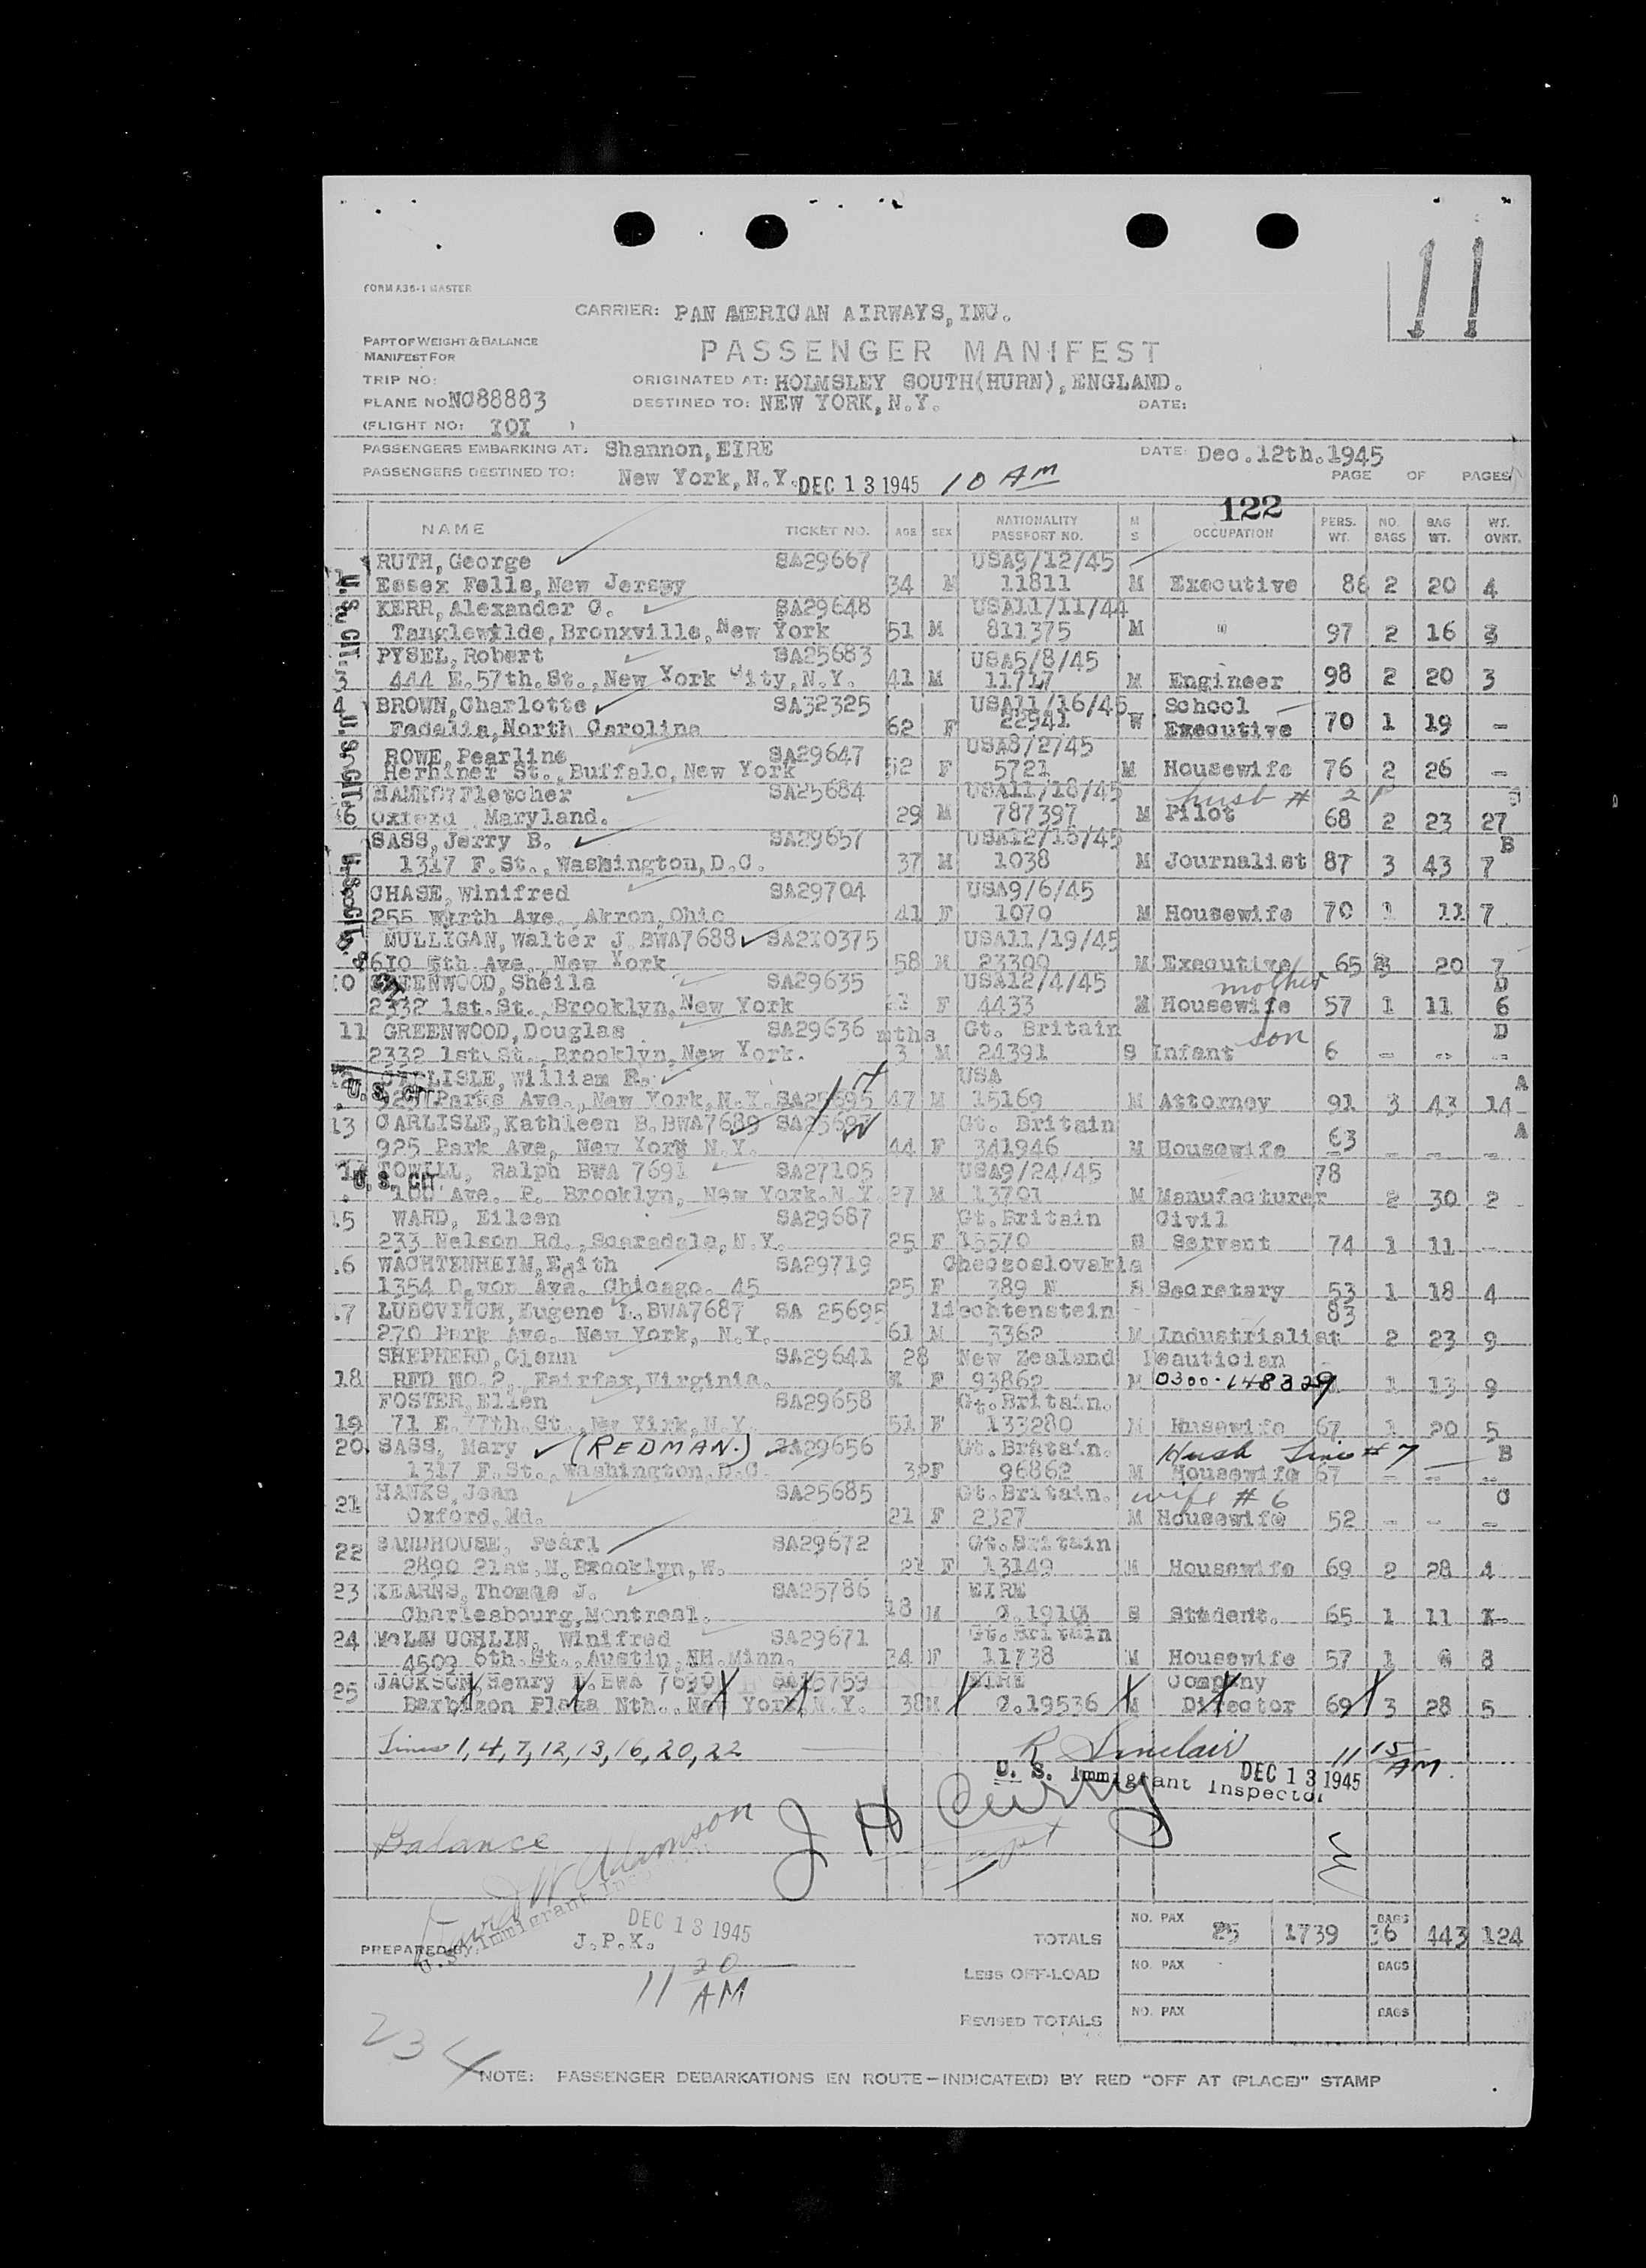 FORM A36-1 MASTER
CARRIER: PAN AMERICAN AIRWAYS, INC.
PART OF WEIGHT & BALANCE
MANIFEST FOR
PASSENGER MANIFEST
TRIP NO:
ORIGINATED AT: HOLMSLEY SOUTH(HURN), ENGLAND.
PLANE NO NC88883
DESTINED TO: NEW YORK, N.Y.
DATE:
(FLIGHT NO: IOI )
PASSENGERS EMBARKING AT: Shannon, EIRE
DATE: Dec.12th.1945
PASSENGERS DESTINED TO: New York, N.Y. DEC 13 1945 10 AM
PAGE OF PAGES
122
NAME TICKET NO. AGE SEX NATIONALITY PASSPORT NO. M S OCCUPATION PERS. WT. NO. BAGS BAG WT. WT. OVNT.
RUTH, George SA29667 USA9/12/45
Essex Fells, New Jersey 34 M 11811 M Executive 86 2 20 4
KERR, Alexander C. SA29648 USA11/11/44
Tanglewylde, Bronxville, New York 51 M 811375 M " 97 2 16 3
PYSEL, Robert SA25683 USA5/8/45
3 444 E.57th.St., New York City, N.Y. 41 M 11717 M Engineer 98 2 20 3
4 BROWN, Charlotte SA32325 USA11/16/45 School
Sedalia, North Carolina 62 F 22941 W Executive 70 1 19 -
ROWE, Pearline SA29647 USA8/2/45
St., Buffalo, New York 52 F 5721 M Housewife 76 2 26 -
Fletcher SA25684 USA11/18/45
6 Oxford Maryland. 29 M 787397 M Pilot 68 2 23 27
SASS, Jerry B. SA29657 USA12/16/45 B
1317 F.St., Washington, D.C. 37 M 1038 M Journalist 87 3 43 7
CHASE, Winifred SA29704 USA9/6/45
255 Ave., Akron, Ohio 41 F 1070 M Housewife 70 1 11 7
MULLIGAN, Walter J. BWA7688 SA2I0375 USA11/19/45
610 5th Ave., New York 58 M 23300 M Executive 65 3 20 7
GREENWOOD, Sheila SA29635 USA12/4/45 mother D
2332 1st.St., Brooklyn, New York F 4433 M Housewife 57 1 11 6
11 GREENWOOD, Douglas SA29636 mths Gt. Britain son D
2332 1st.St., Brooklyn, New York. 3 M 24391 S Infant 6 - - -
CARLISLE, William R. USA A
U.S. CIT. 925 Parks Ave., New York, N.Y. SA25695 47 M 15169 M Attorney 91 3 43 14
13 CARLISLE, Kathleen B. BWA7689 Gt. Britain A
925 Park Ave, New York N.Y. 44 F 341946 M Housewife 63 - - -
TOWILL, Ralph BWA 7691 SA27105 USA9/24/45 78
U.S. CIT. 100 Ave. P. Brooklyn, New York.N.Y. 27 M 13701 M Manufacturer 2 30 2
15 WARD, Eileen SA29687 Gt.Britain Civil
233 Nelson Rd., Scarsdale, N.Y. 25 F 15570 S Servant 74 1 11 -
16 WACHTENHEIM, Edith SA29719 Checzoslovakia
1354 Devon Ave. Chicago. 45 25 F 389 N S Secretary 53 1 18 4
17 LUBOVITCH, Eugene I. BWA7687 SA 25695 Liechtenstein 83
270 Park Ave. New York, N.Y. 61 M 3362 M Industrialist 2 23 9
SHEPHERD, Glenn SA29641 28 New Zealand Beautician
18 RED NO.2, Fairfax, Virginia. F 93862 M 0300-148329 1 13 9
FOSTER, Ellen SA29658 Gt.Britain.
19 71 E.77th.St., New Yirk, N.Y. 51 F 133280 M Husewife 67 1 20 5
20 SASS, Mary (REDMAN.) SA29656 Gt.Britain. Husb Line #7 B
1317 F.St., Washington, D.C. 32F 96862 M Housewife 67 - - -
21 HANKS, Jean SA25685 Gt.Britain. wife #6 C
Oxford, Md. 21 F 2327 M Housewife 52 - - -
22 SANDHOUSE, Pearl SA29672 Gt.Britain
2890 21st.N.Brooklyn, W. 21 F 13149 M Housewife 69 2 28 4
23 KEARNS, Thomas J. SA25786 EIRE
Charlesbourg, Montreal. 18 M S Student. 65 1 11
24 McLAUGHLIN, Winifred SA29671 Gt.Britain
4503 6th.St., Austin, Minn. 34 F 11738 M Housewife 57 1 8
JACKSON, Henry BWA 7690 EIRE Company
25 Barbizon Plaza Nth., New York, N.Y. 38M C.19536 M Director 69 3 28 5
Lines 1,4,7,12,13,16,20,22
R Sinclair 11 15 AM
U. S. Immigrant Inspector DEC 13 1945
J H Curry
Balance
Adamson
U.S. Immigrant
DEC 13 1945
PREPARED BY J.P.K.
11 20 AM
TOTALS NO. PAX 25 1739 BAGS 36 443 124
LESS OFF-LOAD NO. PAX BAGS
REVISED TOTALS NO. PAX BAGS
234
NOTE: PASSENGER DEBARKATIONS EN ROUTE—INDICATE(D) BY RED "OFF AT (PLACE)" STAMP